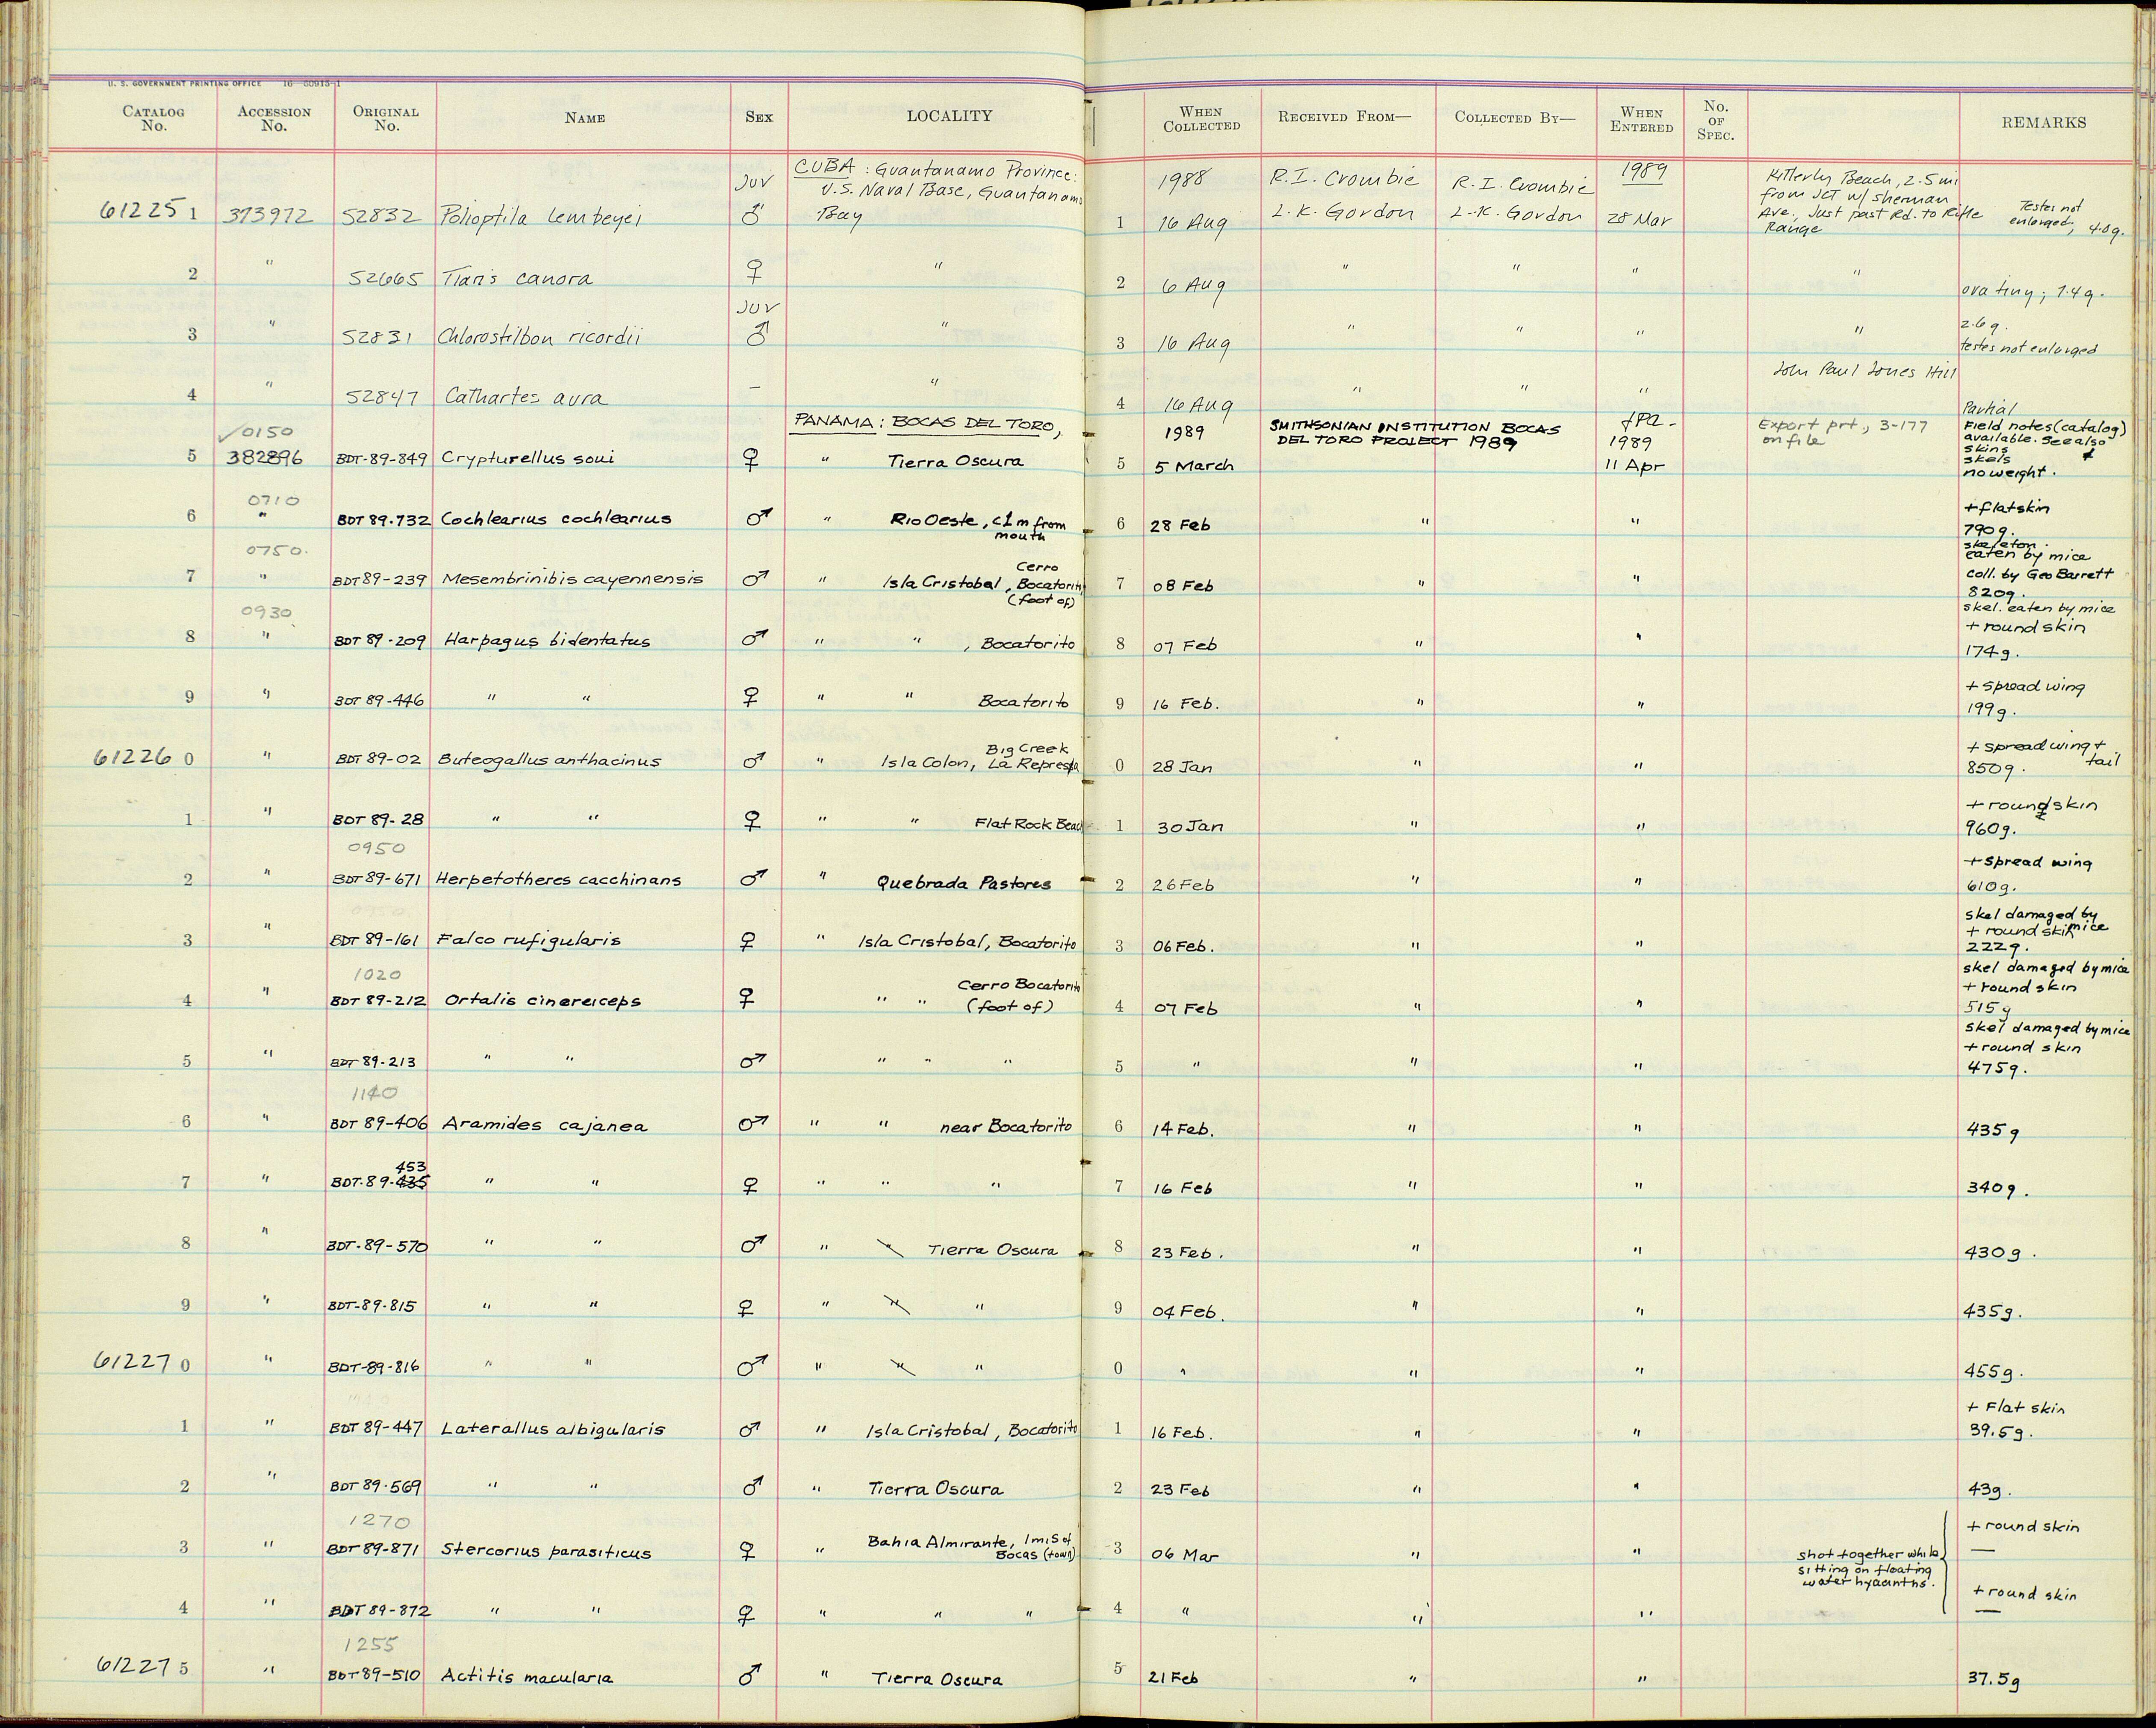 U. S. GOVERNMENT PRINTING OFFICE 16—60915-1
CATALOG No. ACCESSION No. ORIGINAL No. NAME SEX LOCALITY WHEN COLLECTED RECEIVED FROM— COLLECTED BY— WHEN ENTERED No. OF SPEC. REMARKS
CUBA : Guantanamo Province:
U.S. Naval Base, Guantanamo
Bay
61225 1 373972 52832 Polioptila lembeyei JUV ♂ 1 1988 16 Aug R.I. Crombie L.K. Gordon R.I. Crombie L.K. Gordon 1989 28 Mar
Kitterly Beach, 2.5 mi
from JCT w/ Sherman
Ave., Just past Rd. to Rifle
Range
Testes not
enlarged; 4.0g.
2 " 52665 Tiaris canora ♀ " 2 6 Aug " " " " ova tiny; 7.4g.
3 " 52831 Chlorostilbon ricordii JUV ♂ " 3 16 Aug " " " " 2.6g.
testes not enlarged
4 " 52847 Cathartes aura — " 4 16 Aug " " " John Paul Jones Hill Partial
PANAMA: BOCAS DEL TORO,
✓0150
5 382896 BDT-89-849 Crypturellus soui ♀ " Tierra Oscura 5 1989 5 March SMITHSONIAN INSTITUTION BOCAS
DEL TORO PROJECT 1989
1989
11 Apr
Export prt, 3-177
on file
Field notes (catalog)
available. See also
skins +
skels
no weight.
0710
6 " BDT 89-732 Cochlearius cochlearius ♂ " Rio Oeste, <1 m from
mouth
6 28 Feb " " + flatskin
790g.
0750.
7 " BDT 89-239 Mesembrinibis cayennensis ♂ " Isla Cristobal, Cerro Bocatorito
(foot of)
7 08 Feb " " skeleton
eaten by mice
coll. by Geo Barrett
820g.
0930
8 " BDT 89-209 Harpagus bidentatus ♂ " " , Bocatorito 8 07 Feb " " skel. eaten by mice
+ round skin
174g.
9 " BDT 89-446 " " ♀ " " Bocatorito 9 16 Feb. " " + spread wing
199g.
61226 0 " BDT 89-02 Buteogallus anthacinus ♂ " Isla Colon, Big Creek
La Represa
0 28 Jan " " + spread wing +
tail
850g.
1 " BDT 89-28 " " ♀ " " Flat Rock Beach 1 30 Jan " " + round skin
960g.
0950
2 " BDT 89-671 Herpetotheres cacchinans ♂ " Quebrada Pastores 2 26 Feb " " + spread wing
610g.
3 " BDT 89-161 Falco rufigularis ♀ " Isla Cristobal, Bocatorito 3 06 Feb. " " skel damaged by
mice
+ round skin
222g.
1020
4 " BDT 89-212 Ortalis cinereiceps ♀ " " Cerro Bocatorito
(foot of)
4 07 Feb " " skel damaged by mice
+ round skin
515g
5 " BDT 89-213 " " ♂ " " " 5 " " " skel damaged by mice
+ round skin
475g.
1140
6 " BDT 89-406 Aramides cajanea ♂ " " near Bocatorito 6 14 Feb. " " 435g
453
7 " BDT-89-435 " " ♀ " " " 7 16 Feb " " 340g.
8 " BDT-89-570 " " ♂ " " Tierra Oscura 8 23 Feb. " " 430g.
9 " BDT-89-815 " " ♀ " " " 9 04 Feb. " " 435g.
61227 0 " BDT-89-816 " " ♂ " " " 0 " " " 455g.
1 " BDT 89-447 Laterallus albigularis ♂ " Isla Cristobal, Bocatorito 1 16 Feb. " " + Flat skin
39.5g.
2 " BDT 89-569 " " ♂ " Tierra Oscura 2 23 Feb " " 43g.
1270
3 " BDT 89-871 Stercorius parasiticus ♀ " Bahia Almirante, 1 mi S of
Bocas (town)
3 06 Mar " " shot together while
sitting on floating
water hyacinths.
+ round skin
—
4 " BDT 89-872 " " ♀ " " " 4 " " " + round skin
—
1255
61227 5 " BDT 89-510 Actitis macularia ♂ " Tierra Oscura 5 21 Feb " " 37.5g